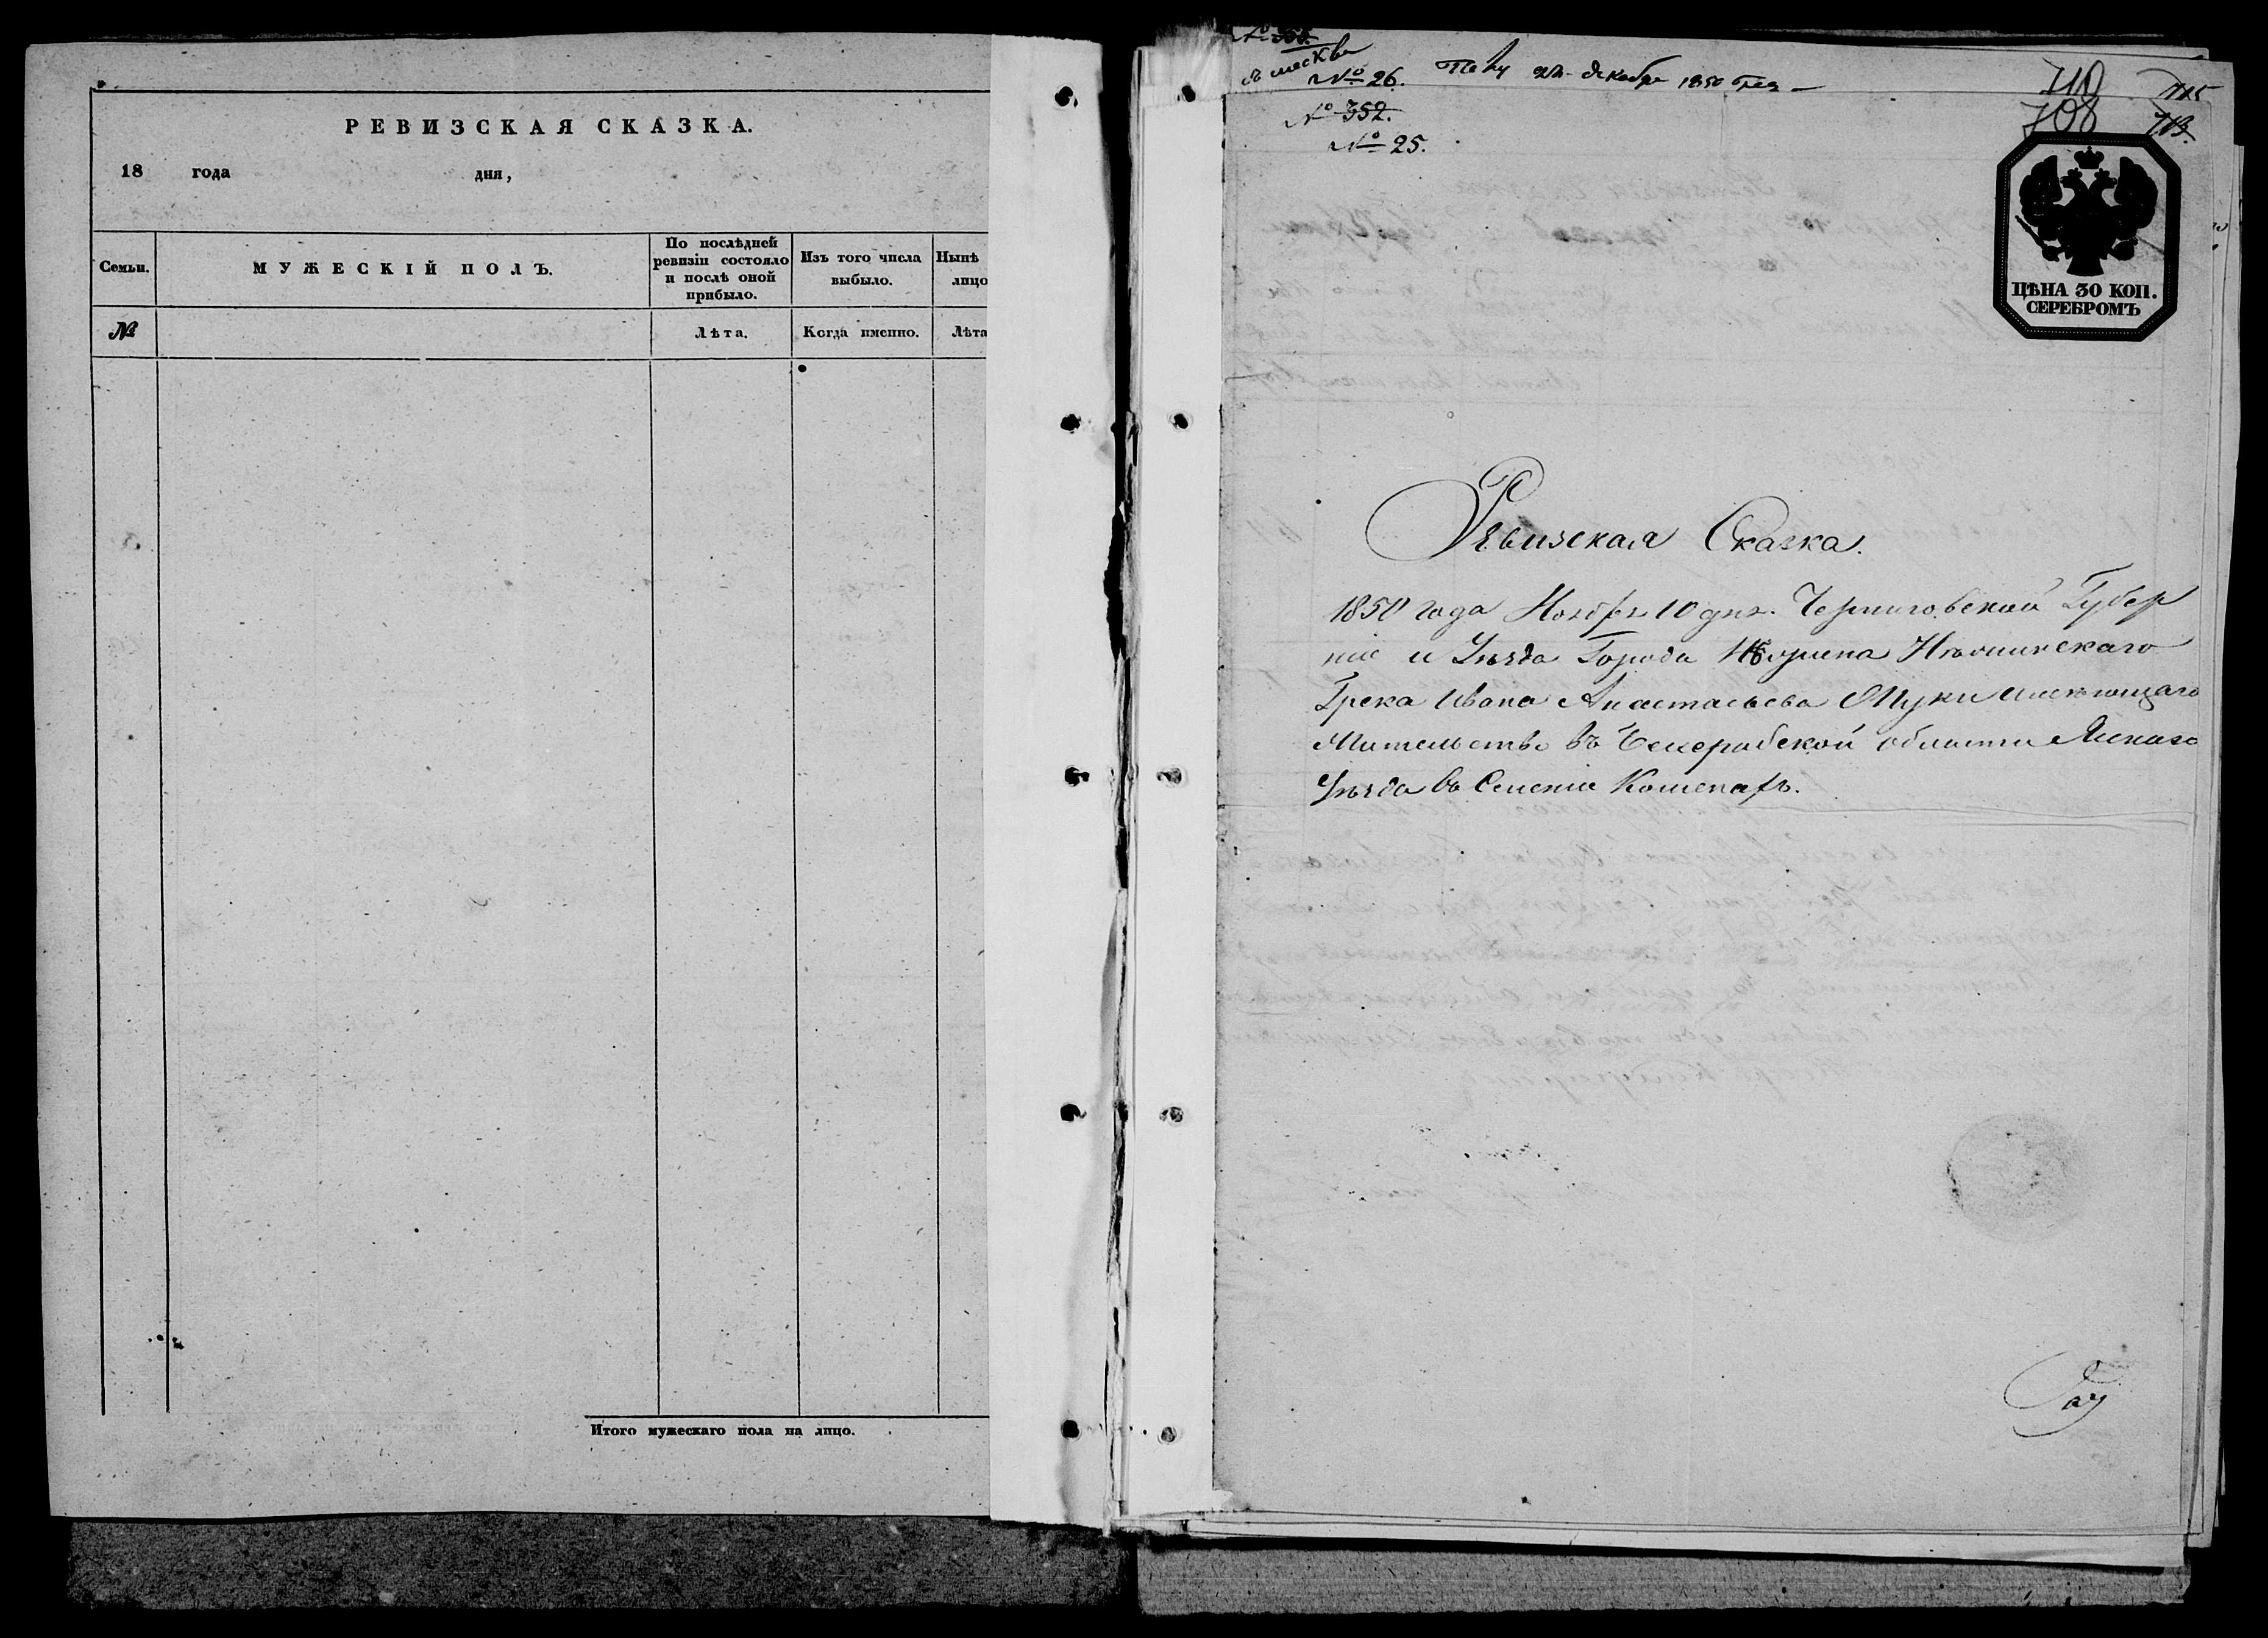 РЕВИЗСКАЯ СКАЗКА.
18 года дня,
Семьи.
МУЖЕСКІЙ ПОЛЪ.
По послѣдней
ревизіи состояло
и послѣ оной
прибыло.
Изъ того числа
выбыло.
Нынѣ
лицо
№
Лѣта.
Когда именно.
Лѣта
Итого мужескаго пола на лицо.
№ 26.
декабря 1850
№ 352.
№ 25.
708
713.
ЦѢНА 30 КОП.
СЕРЕБРОМЪ
Ревизская Сказка.
1850 года Ноября 10 дня. Черниговской Губер
ніи и Уѣзда Города Нѣжина Нѣжинскаго
Грека Ивана Анастасьева Муки имѣющаго
Жительство въ Бесерабской области Яскаго
Уѣзда въ Селеніи